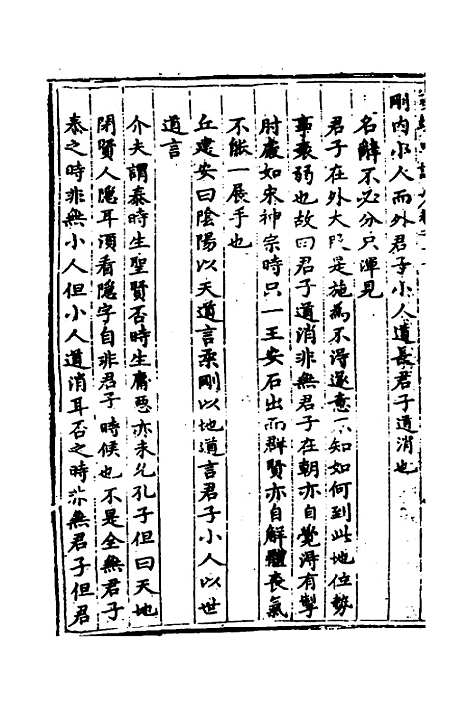 剛内小人而外君子小人道長君子道消也
名辭不必分只渾見
君子在外大是施為不得遂意不知如何到此地位勢
事衰弱也故曰君子道消非無君子在朝亦自覺得有掣
肘處如宋神宗時只一王安石出而群賢亦自解體喪氣
不能一展手也
丘建安曰陰陽以天道言柔剛以地道言君子小人以世
道言
介夫謂泰時生聖賢否時生庸惡亦未允孔子但曰天地
閉賢人隱耳須看隱字自非君子時候也不是全無君子
泰之時非無小人但小人道消耳否之時非無君子但君